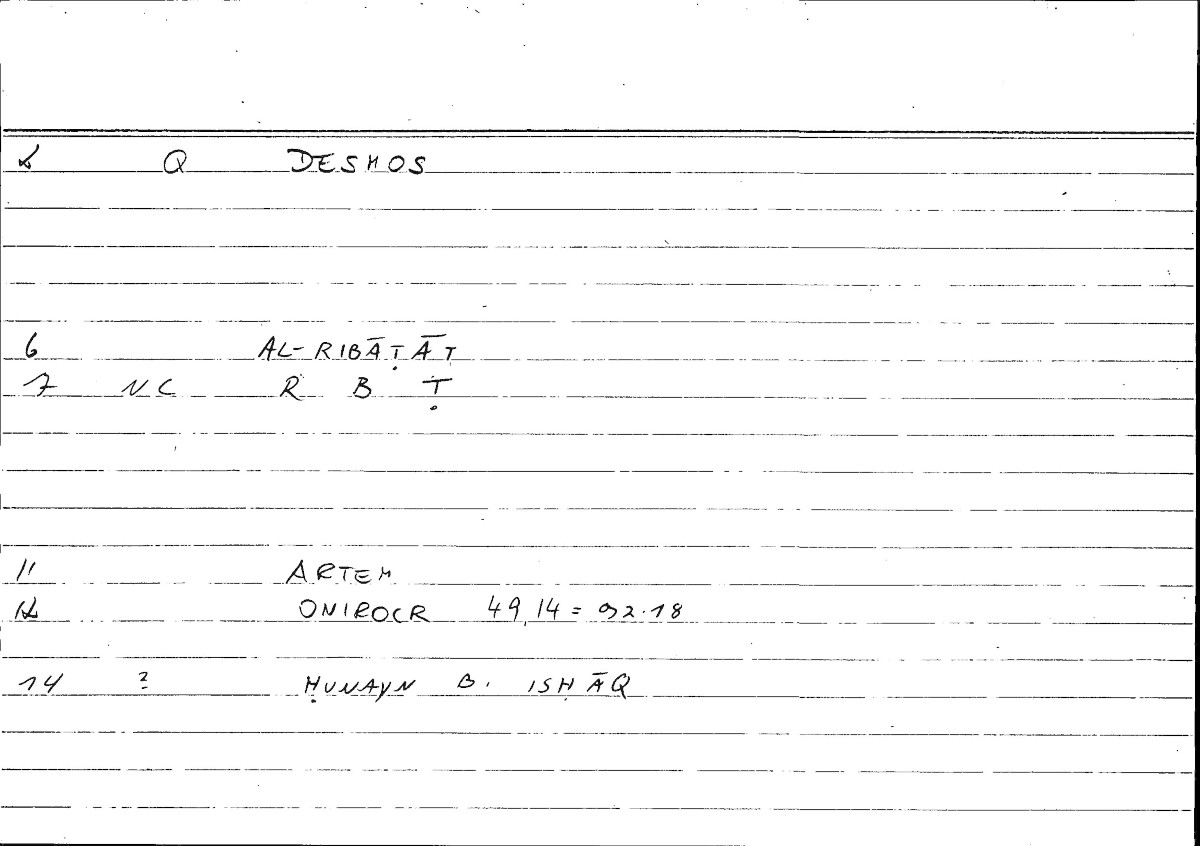 2 Q DESMOS
6 AL-RIBĀṬĀT
7 NC R B Ṭ
11 ARTEM
12 ONIROCR 49,14 = 92.18
14 ? ḤUNAYN B. ISḤĀQ